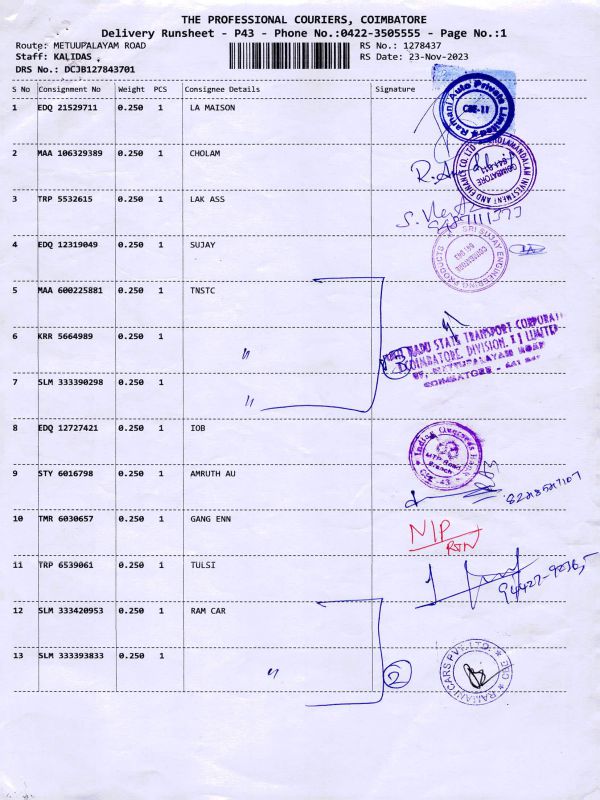 THE PROFESSIONAL COURIERS, COIMBATORE
Delivery Runsheet - P43 - Phone No.:0422-3505555 - Page No.:1
Route: METUUPALAYAM ROAD RS No.: 1278437
Staff: KALIDAS . RS Date: 23-Nov-2023
DRS No.: DCJB127843701
S No Consignment No Weight PCS Consignee Details Signature
1 EDQ 21529711 0.250 1 LA MAISON
Ramani Auto Private Limited CBE-11
2 MAA 106329389 0.250 1 CHOLAM
CHOLAMANDALAM INVESTMENT AND FINANCE CO. LTD COIMBATORE
3 TRP 5532615 0.250 1 LAK ASS
4 EDQ 12319049 0.250 1 SUJAY
SRI SUJAY ENGINEERING PRODUCTS COIMBATORE
5 MAA 600225881 0.250 1 TNSTC
NADU STATE TRANSPORT CORPORATI
COIMBATORE, DIVISION. II LIMITED
METTUPALAYAM ROAD
COIMBATORE - 641
6 KRR 5664989 0.250 1 "
3
7 SLM 333390298 0.250 1 "
8 EDQ 12727421 0.250 1 IOB
Indian Overseas Bank MTP Road Branch CBE-43
9 STY 6016798 0.250 1 AMRUTH AU
10 TMR 6030657 0.250 1 GANG ENN
N/P
RTN
11 TRP 6539061 0.250 1 TULSI
12 SLM 333420953 0.250 1 RAM CAR
13 SLM 333393833 0.250 1 " 2
RAMANI CARS PVT. LTD. CBE